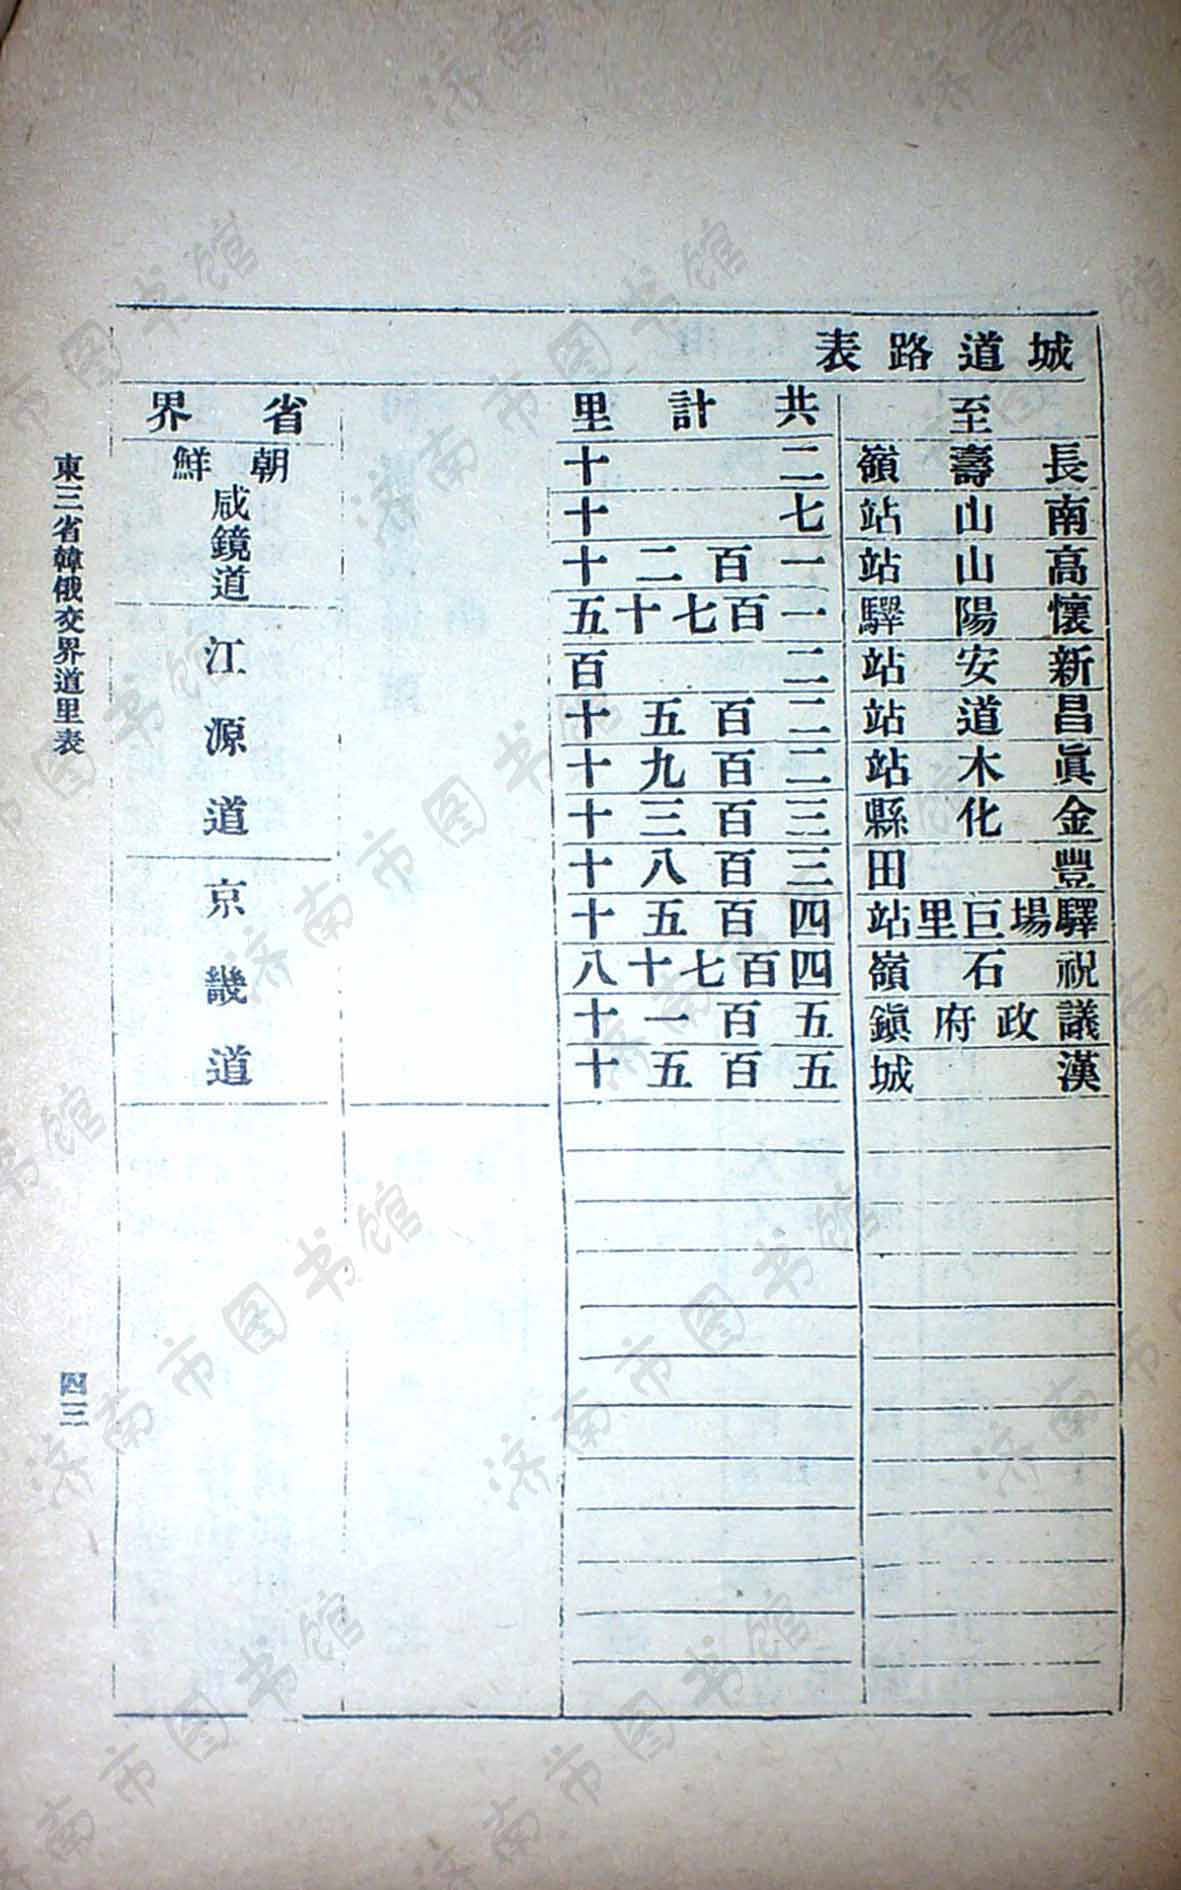 城道路表
至　共計里　省界
長壽嶺　二十
南山站　七十
高山站　一百二十
懷陽驛　一百七十五
新安站　二百
昌道站　二百五十
眞木站　二百九十
金化縣　三百三十
豐田　三百八十
驛場巨里站　四百五十
祝石嶺　四百七十八
議政府鎭　五百一十
漢城　五百五十
朝鮮
咸鏡道
江源道
京畿道
東三省韓俄交界道里表
四三
济南市图书馆